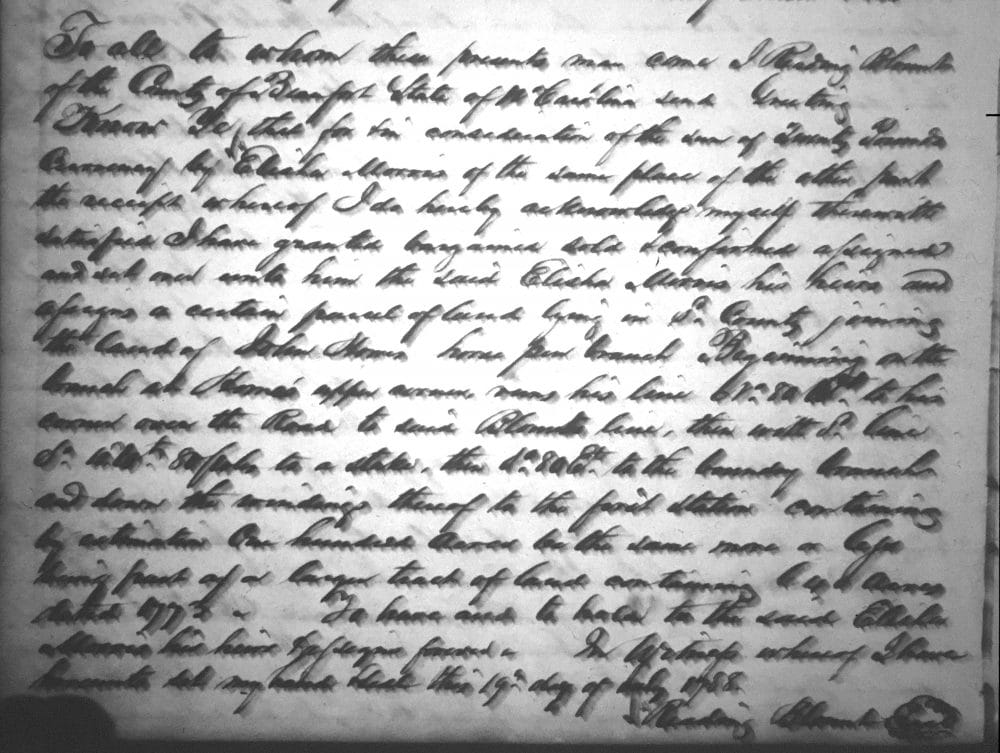 To all to whom these presents may come I Reading Blount
of the County of Beaufort State of N Carolina send Greeting
Know Ye that for & in consideration of the sum of Twenty Pounds
Currency by Elisha Morris of the same place of the other part
the receipt whereof I do hereby acknowledge myself therewith
satisfied I have granted bargained sold & confirmed assigned
and set over unto him the said Elisha Morris his heirs and
assigns a certain parcel of land lying in Sd. County joining
the land of John horse pen branch Beginning on the
branch at upper corner runs his line to his
corner over the Road to said Blounts line, then with Sd. line
So. Wt. poles to a stake, then Et. to the branch
and down the windings thereof to the first station containing
by estimation One hundred acres be the same more or less
being part of a larger tract of land containing acres
dated To have and to hold to the said Elisha
Morris his heirs & assigns forever In Witness whereof I have
hereunto set my hand & seal this 19th day of July 1788
Reading Blount